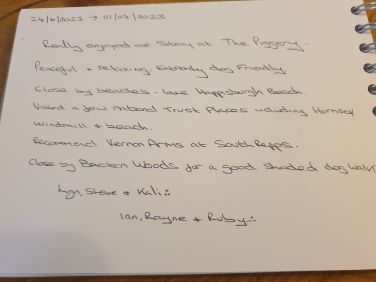 24/6/2023 → 01/07/2023
Really enjoyed our stay at The Piggery.
Peaceful + relaxing. Extremely dog friendly.
Close by beaches - love Happisburgh Beach.
Visited a few National Trust Places including Horsey
Windmill + beach.
Recommend Vernon Arms at South Repps.
Close by Bacton Woods for a good shaded dog walk
Lyn, Steve + Kali
Ian, Rayne + Ruby